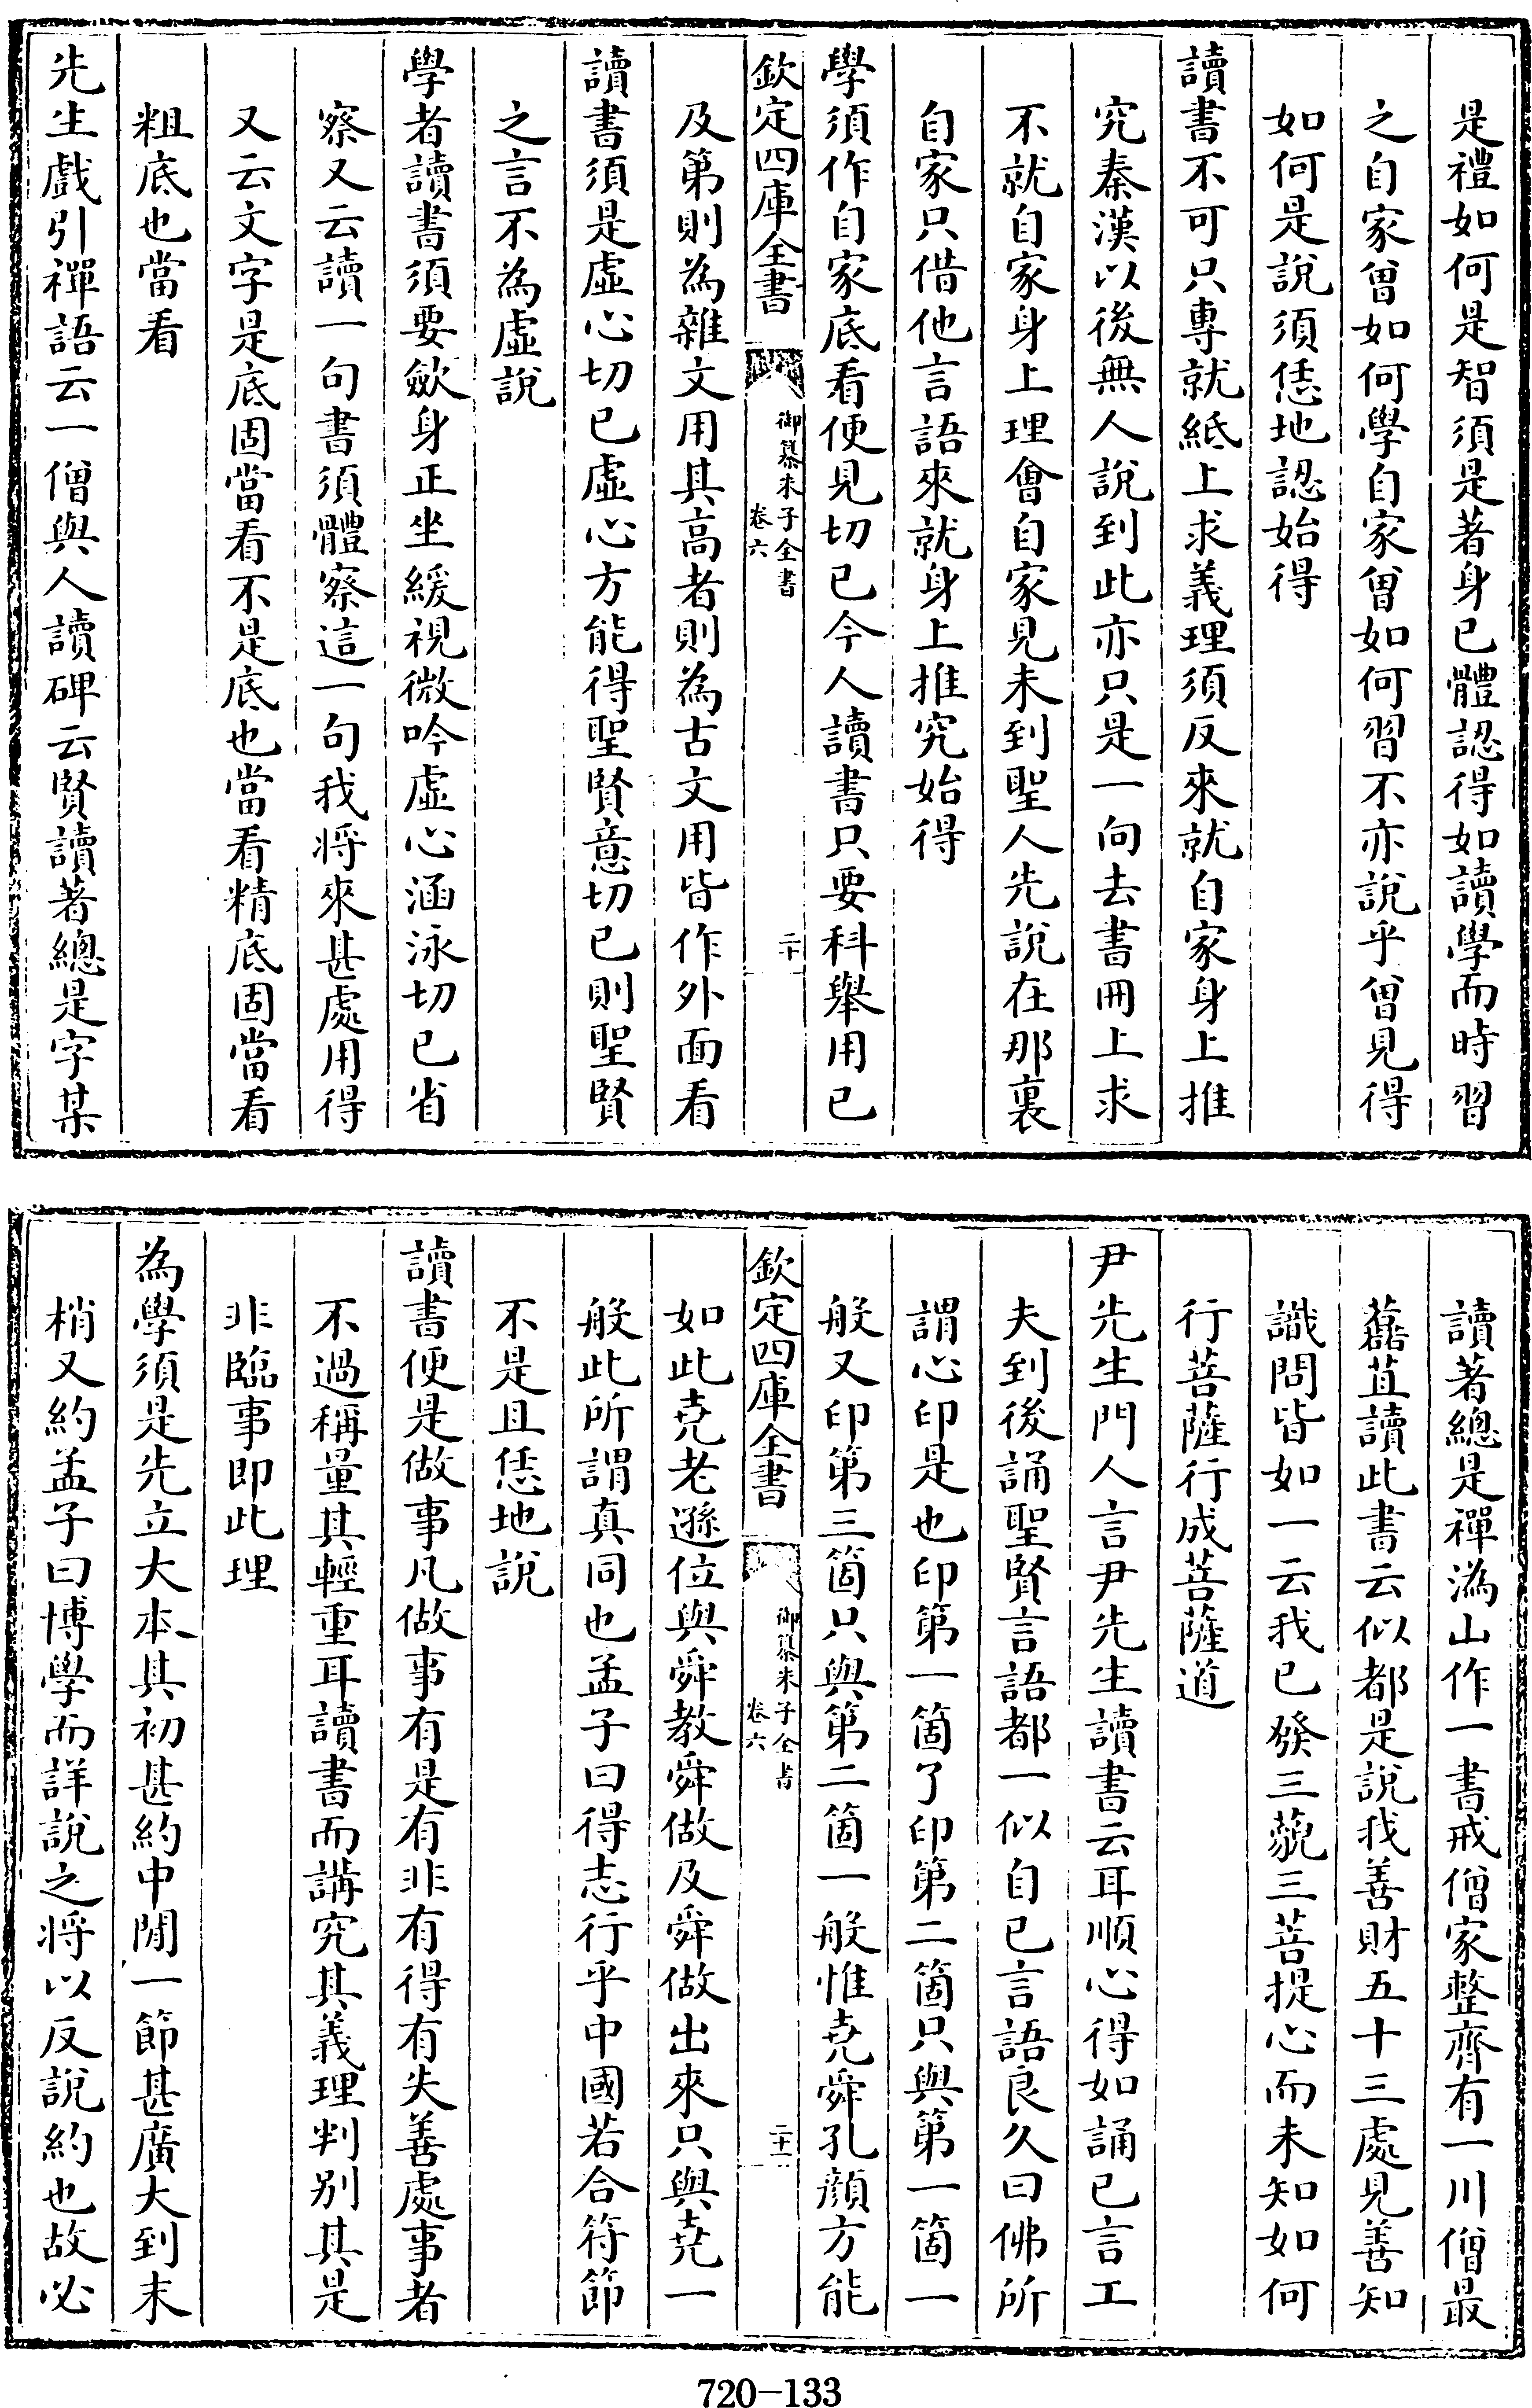 是禮如何是智須是著身已體認得如讀學而時習
之自家曾如何學自家曾如何習不亦說乎曾見得
如何是說須恁地認始得
讀書不可只專就紙上求義理須反來就自家身上推
究秦漢以後無人說到此亦只是一向去書冊上求
不就自家身上理會自家見未到聖人先說在那裏
自家只借他言語來就身上推究始得
學須作自家底看便見切已今人讀書只要科舉用已
欽定四庫全書
御纂朱子全書
卷六
二十
及第則為雜文用其高者則為古文用皆作外面看
讀書須是虛心切已虛心方能得聖賢意切已則聖賢
之言不為虛說
學者讀書須要歛身正坐緩視微吟虛心涵泳切已省
察又云讀一句書須體察這一句我将來甚處用得
又云文字是底固當看不是底也當看精底固當看
粗底也當看
先生戲引禪語云一僧與人讀碑云賢讀著總是字某
讀著總是禪溈山作一書戒僧家整齊有一川僧最
𧄍苴讀此書云似都是說我善財五十三處見善知
識問皆如一云我已發三藐三菩提心而未知如何
行菩薩行成菩薩道
尹先生門人言尹先生讀書云耳順心得如誦已言工
夫到後誦聖賢言語都一似自已言語良久曰佛所
謂心印是也印第一箇了印第二箇只與第一箇一
般又印第三箇只與第二箇一般惟堯舜孔顏方能
欽定四庫全書
御纂朱子全書
卷六
二十一
如此堯老遜位與舜教舜做及舜做出來只與堯一
般此所謂真同也孟子曰得志行乎中國若合符節
不是且恁地說
讀書便是做事凡做事有是有非有得有失善處事者
不過稱量其輕重耳讀書而講究其義理判別其是
非臨事即此理
為學須是先立大本其初甚約中間一節甚廣大到末
梢又約孟子曰博學而詳說之将以反說約也故必
720—133